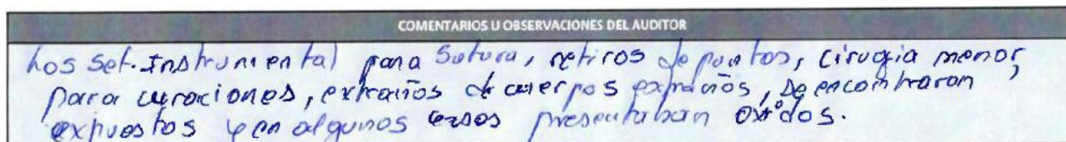 COMENTARIOS U OBSERVACIONES DEL AUDITOR
Los set. Instrumental para Sutura, retiros de puntos, cirugia menor,
para curaciones, extraños de cuerpos extraños, se encontraron
expuestos y en algunos casos presentaban oxidos.